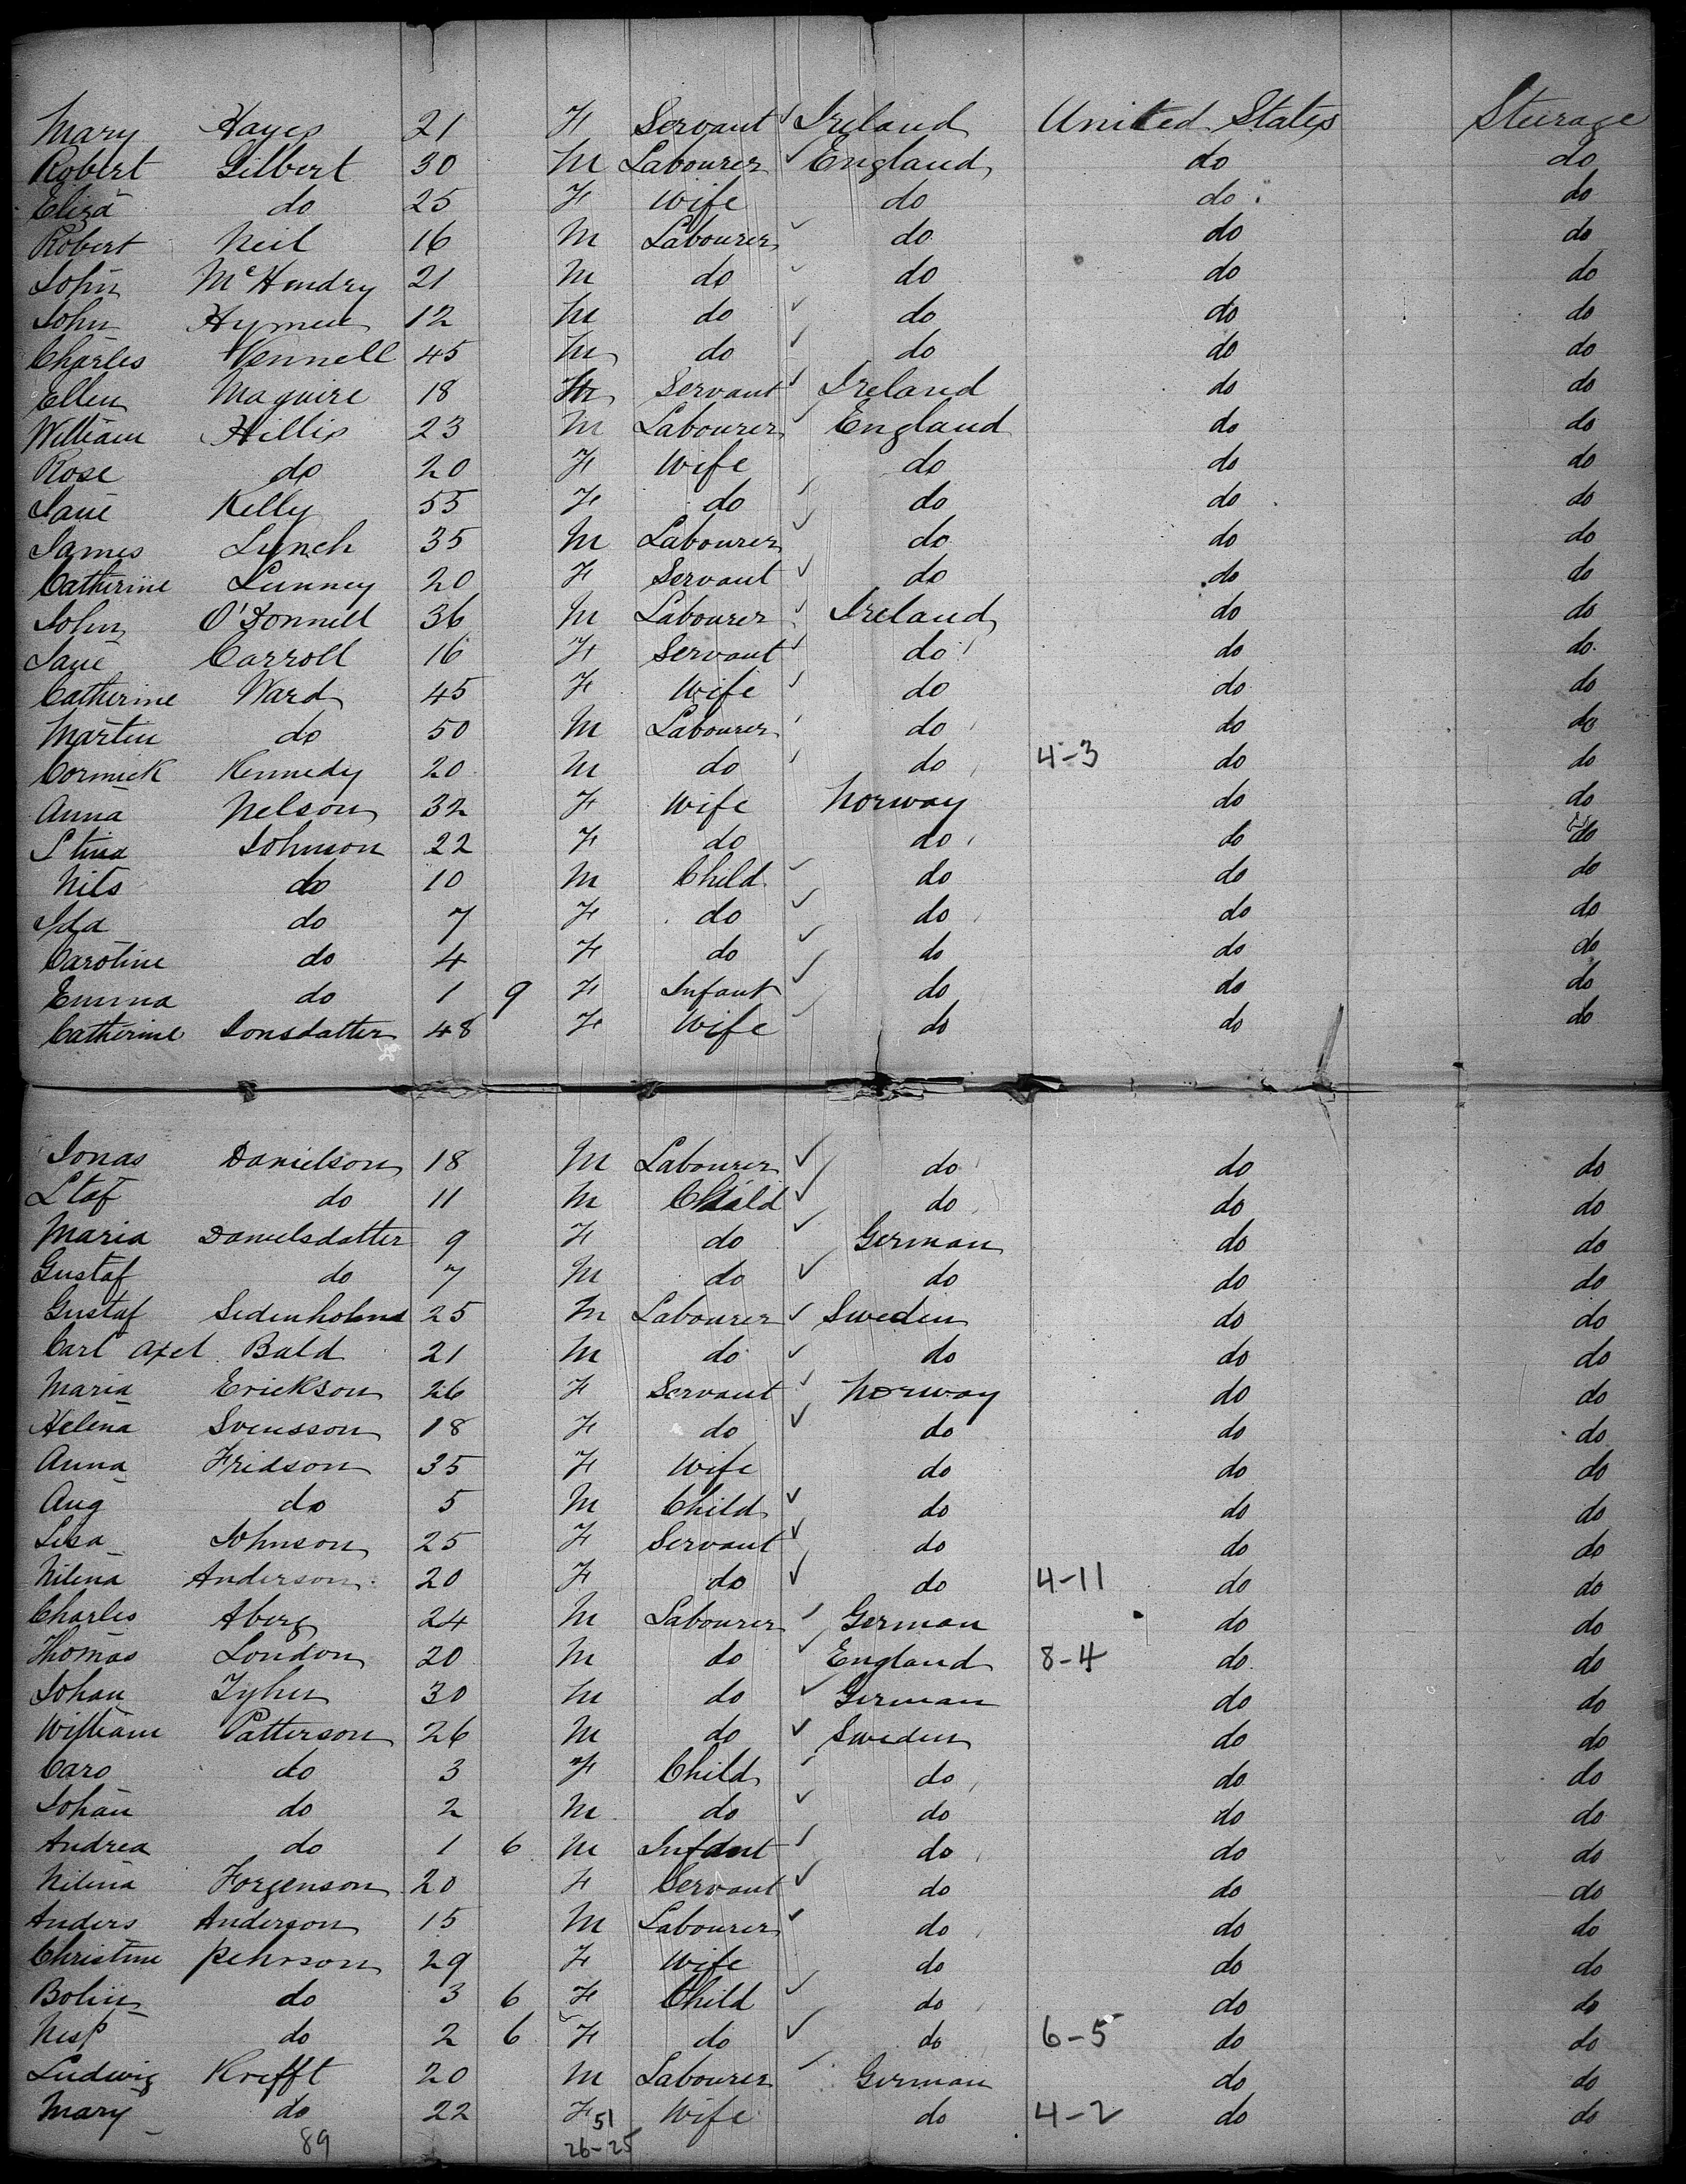 Mary Hayes 21 F Servant Ireland United States Steerage
Robert Gilbert 30 M Labourer England do do
Eliza do 25 F Wife do do do
Robert Neil 16 M Labourer do do do
John McHendry 21 M do do do do
John 12 M do do do do
Charles Vennell 45 M do do do do
Ellen Maguire 18 Servant Ireland do do
William Hillis 23 M Labourer England do do
Rose do 20 F Wife do do do
Jane Kelly 55 F do do do do
James Lynch 35 M Labourer do do do
Catherine Lunney 20 F Servant do do do
John O'Donnell 36 M Labourer Ireland do do
Jane Carroll 16 F Servant do do do
Catherine Ward 45 F Wife do do do
Martin do 50 M Labourer do do do
Cormick Kennedy 20 M do do 4-3 do do
Anna Nelson 32 F Wife Norway do do
Stina Johnson 22 F do do do do
Nils do 10 M Child do do do
Ida do 7 F do do do do
Caroline do 4 F do do do do
Emma do 1 9 F Infant do do do
Catherine Jonsdatter 48 F Wife do do do
Jonas Danielson 18 M Labourer do do do
do 11 M Child do do do
Maria Danielsdatter 9 F do German do do
Gustaf do 7 M do do do do
Gustaf Sedenholm 25 M Labourer Sweden do do
Carl Axel Bald 21 M do do do do
Maria Erickson 26 F Servant Norway do do
Helena Svensson 18 F do do do do
Anna Fridson 35 F Wife do do do
Aug do 5 M Child do do do
Lisa Johnson 25 F Servant do do do
Nilena Anderson 20 F do do 4-11 do do
Charles Aberg 24 M Labourer German do do
Thomas London 20 M do England 8-4 do do
Johan 30 M do German do do
William Patterson 26 M do Sweden do do
Caro do 3 F Child do do do
Johan do 2 M do do do do
Andrea do 1 6 M Infant do do do
Nilena Forgenson 20 F Servant do do do
Anders Anderson 15 M Labourer do do do
Christine Pehrson 29 F Wife do do do
do 3 6 F Child do do do
do 2 6 F do do 6-5 do do
Ludwig Krefft 20 M Labourer German do do
Mary do 22 F Wife do 4-2 do do
51
89 26-25